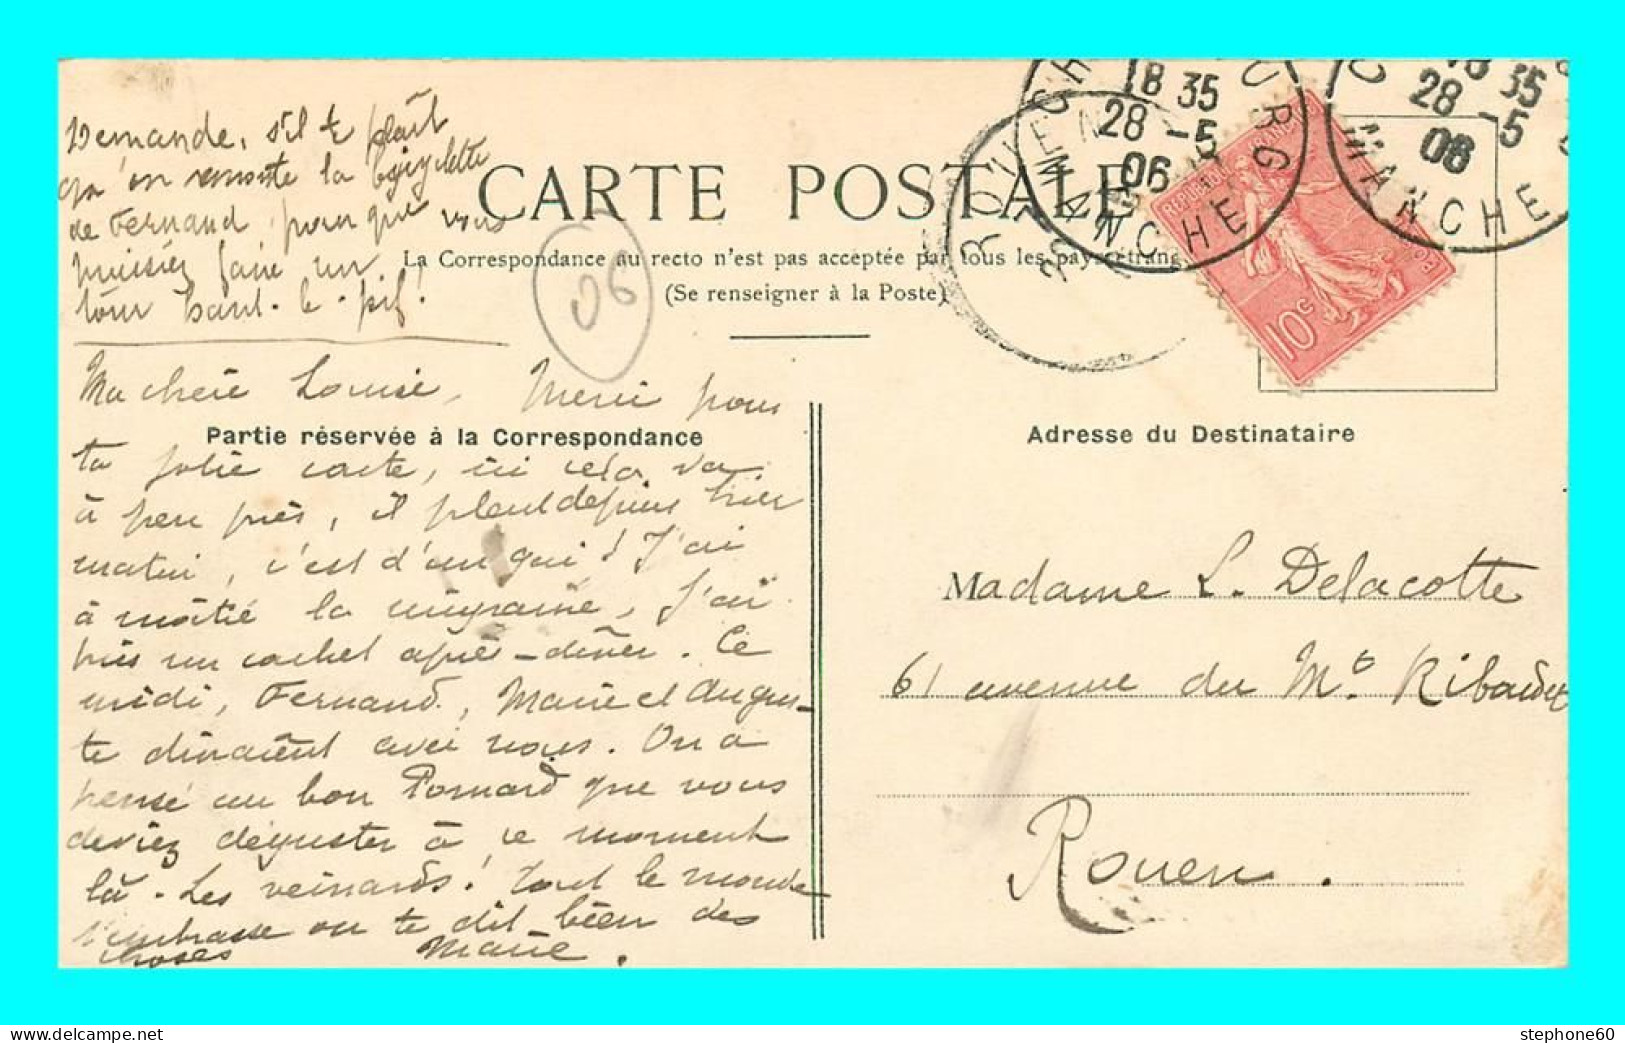 Demande, s'il te plaît
qu'on remonte la bycyclette
de Fernand pour que vous
puissiez faire un
tour haut-le-pif!
CARTE POSTALE
La Correspondance au recto n'est pas acceptée par tous les pays étrang
(Se renseigner à la Poste)
06
18 35
28 -5
06
MANCHE
35
28 -5
06
MANCHE
10c
Ma chère Louise, Merci pour
Partie réservée à la Correspondance
ta jolie carte, ici cela va
à peu près, il pleut depuis hier
matin, c'est d'un gai! J'ai
à moitié la migraine, j'ai
pris un cachet après-dîner. Ce
midi, Fernand, Marie et Augus-
te dînaient avec nous. On a
pensé au bon Pomard que vous
deviez déguster à ce moment
là. Les veinards! Tout le monde
t'embrasse ou te dit bien des
choses Marie.
Adresse du Destinataire
Madame L. Delacotte
61 avenue du Mt Ribaudet
Rouen.
stephone60